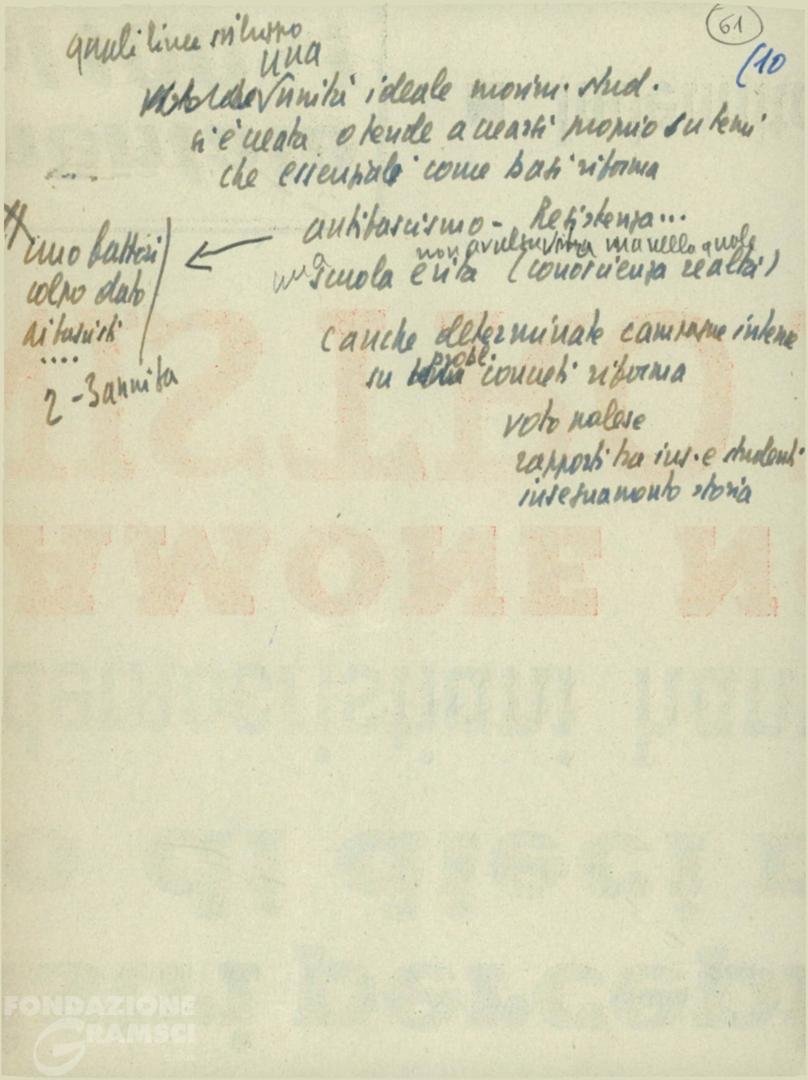 61
(10
quali linee sviluppo
una
unità ideale movim. stud.
si è creata o tende a crearsi proprio su temi
che essenziali come basi riforma
antifascismo - Resistenza...
non avulsa vita ma nello quale
una scuola è vita (conoscienza realtà)
uno battosi
colpo dato
ai fascisti
....
2-3 anni fa
e anche determinate campagne interne
su probl. concreti riforma
voto palese
rapporti tra ins. e studenti
insegnamento storia
FONDAZIONE
GRAMSCI